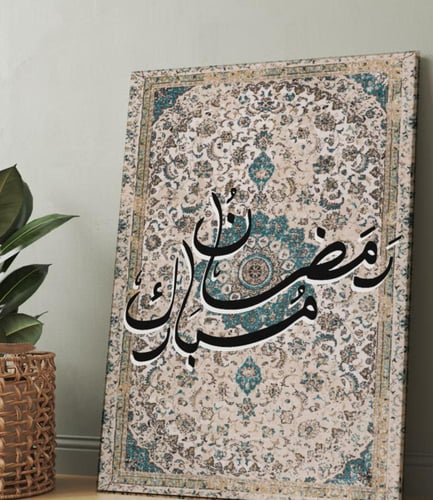 رَمَضَانُ
مُبَارَك